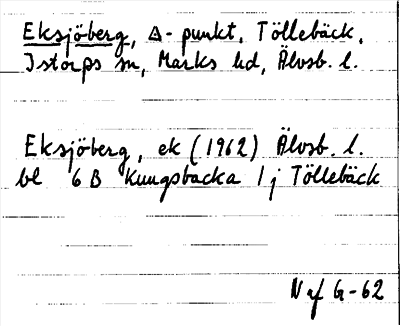 Eksjöberg, Δ-punkt, Töllebäck,
Istorps sn, Marks hd, Älvsb. l.
Eksjöberg, ek (1962) Älvsb. l.
bl 6 B Kungsbacka 1 j Töllebäck
N af G-62